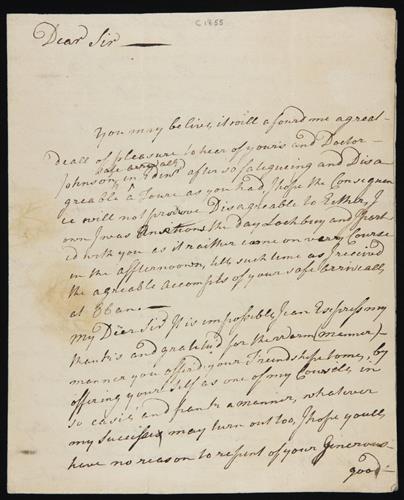 C1855
Dear Sir
You may belive, it will afourd me a great
deall of pleasure to hear of yours and Doctor
safe arrivall
Johnson, in Edinr after so fatequeing and Disa
greable a Toure as you had, I hope the Consequen
ce will not prove Disagreable to Either, I
own I was Anxtious the day Lochbuy and I part
ed with you as it raither came on very Course
in the affternoown, till such time as I received
the agreable Accompts of your safe Arriveall
at Oban
My Dear Sir It is impossible, I can Express my
thanks and gratitud for the warm (manner)
manner you offird your Friendshipe to me, by
offering your self as one of my Counsels, in
so easie and frank a manner, whatever
my success may turn out too, I hope youll
have no reason to repent of your Generous
good-